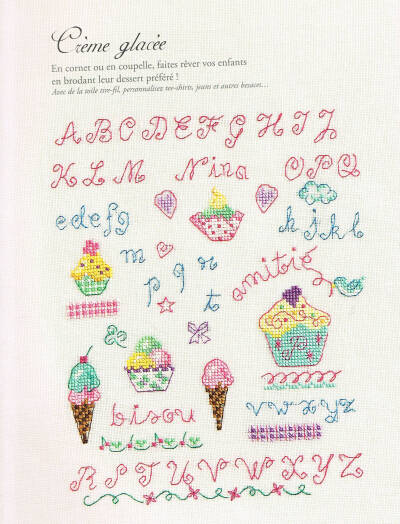 Crème glacée
En cornet ou en coupelle, faites rêver vos enfants
en brodant leur dessert préféré !
Avec de la toile tire-fil, personnalisez tee-shirts, jeans et autres besaces...
A B C D E F G H I J
K L M Nina O P Q
e d e f g h i k l
m p q r amitié
t
bisou v w x y z
R S T U V W X Y Z